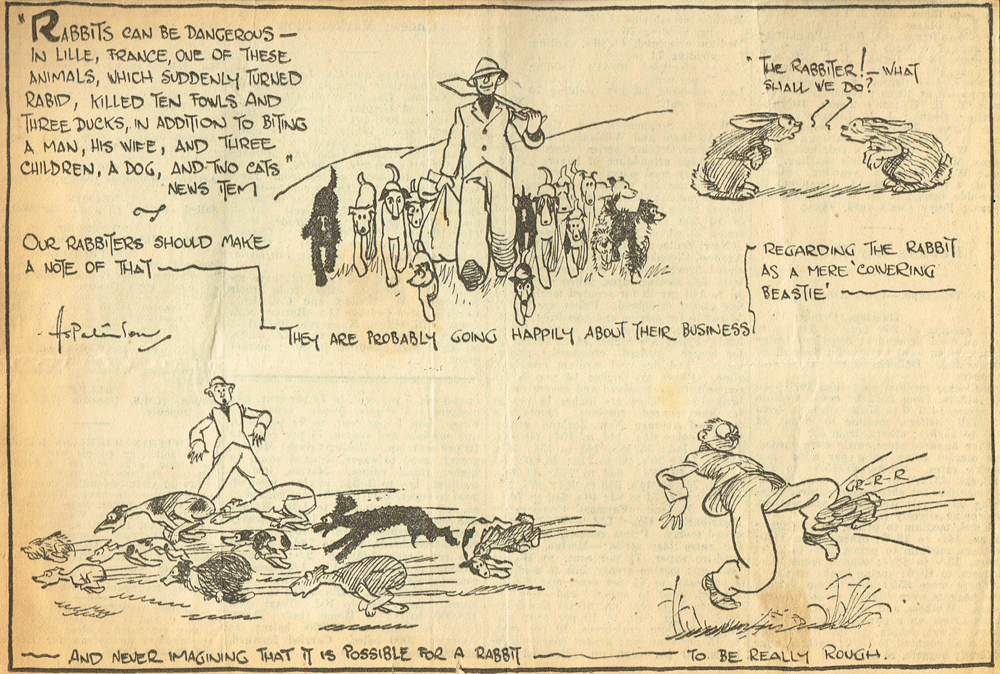 "RABBITS CAN BE DANGEROUS —
IN LILLE, FRANCE, ONE OF THESE
ANIMALS, WHICH SUDDENLY TURNED
RABID, KILLED TEN FOWLS AND
THREE DUCKS, IN ADDITION TO BITING
A MAN, HIS WIFE, AND THREE
CHILDREN, A DOG, AND TWO CATS"
NEWS ITEM
OUR RABBITERS SHOULD MAKE
A NOTE OF THAT —
"THE RABBITER! — WHAT
SHALL WE DO?
THEY ARE PROBABLY GOING HAPPILY ABOUT THEIR BUSINESS
REGARDING THE RABBIT
AS A MERE 'COWERING
BEASTIE' —
GR-R-R
— AND NEVER IMAGINING THAT IT IS POSSIBLE FOR A RABBIT — TO BE REALLY ROUGH.